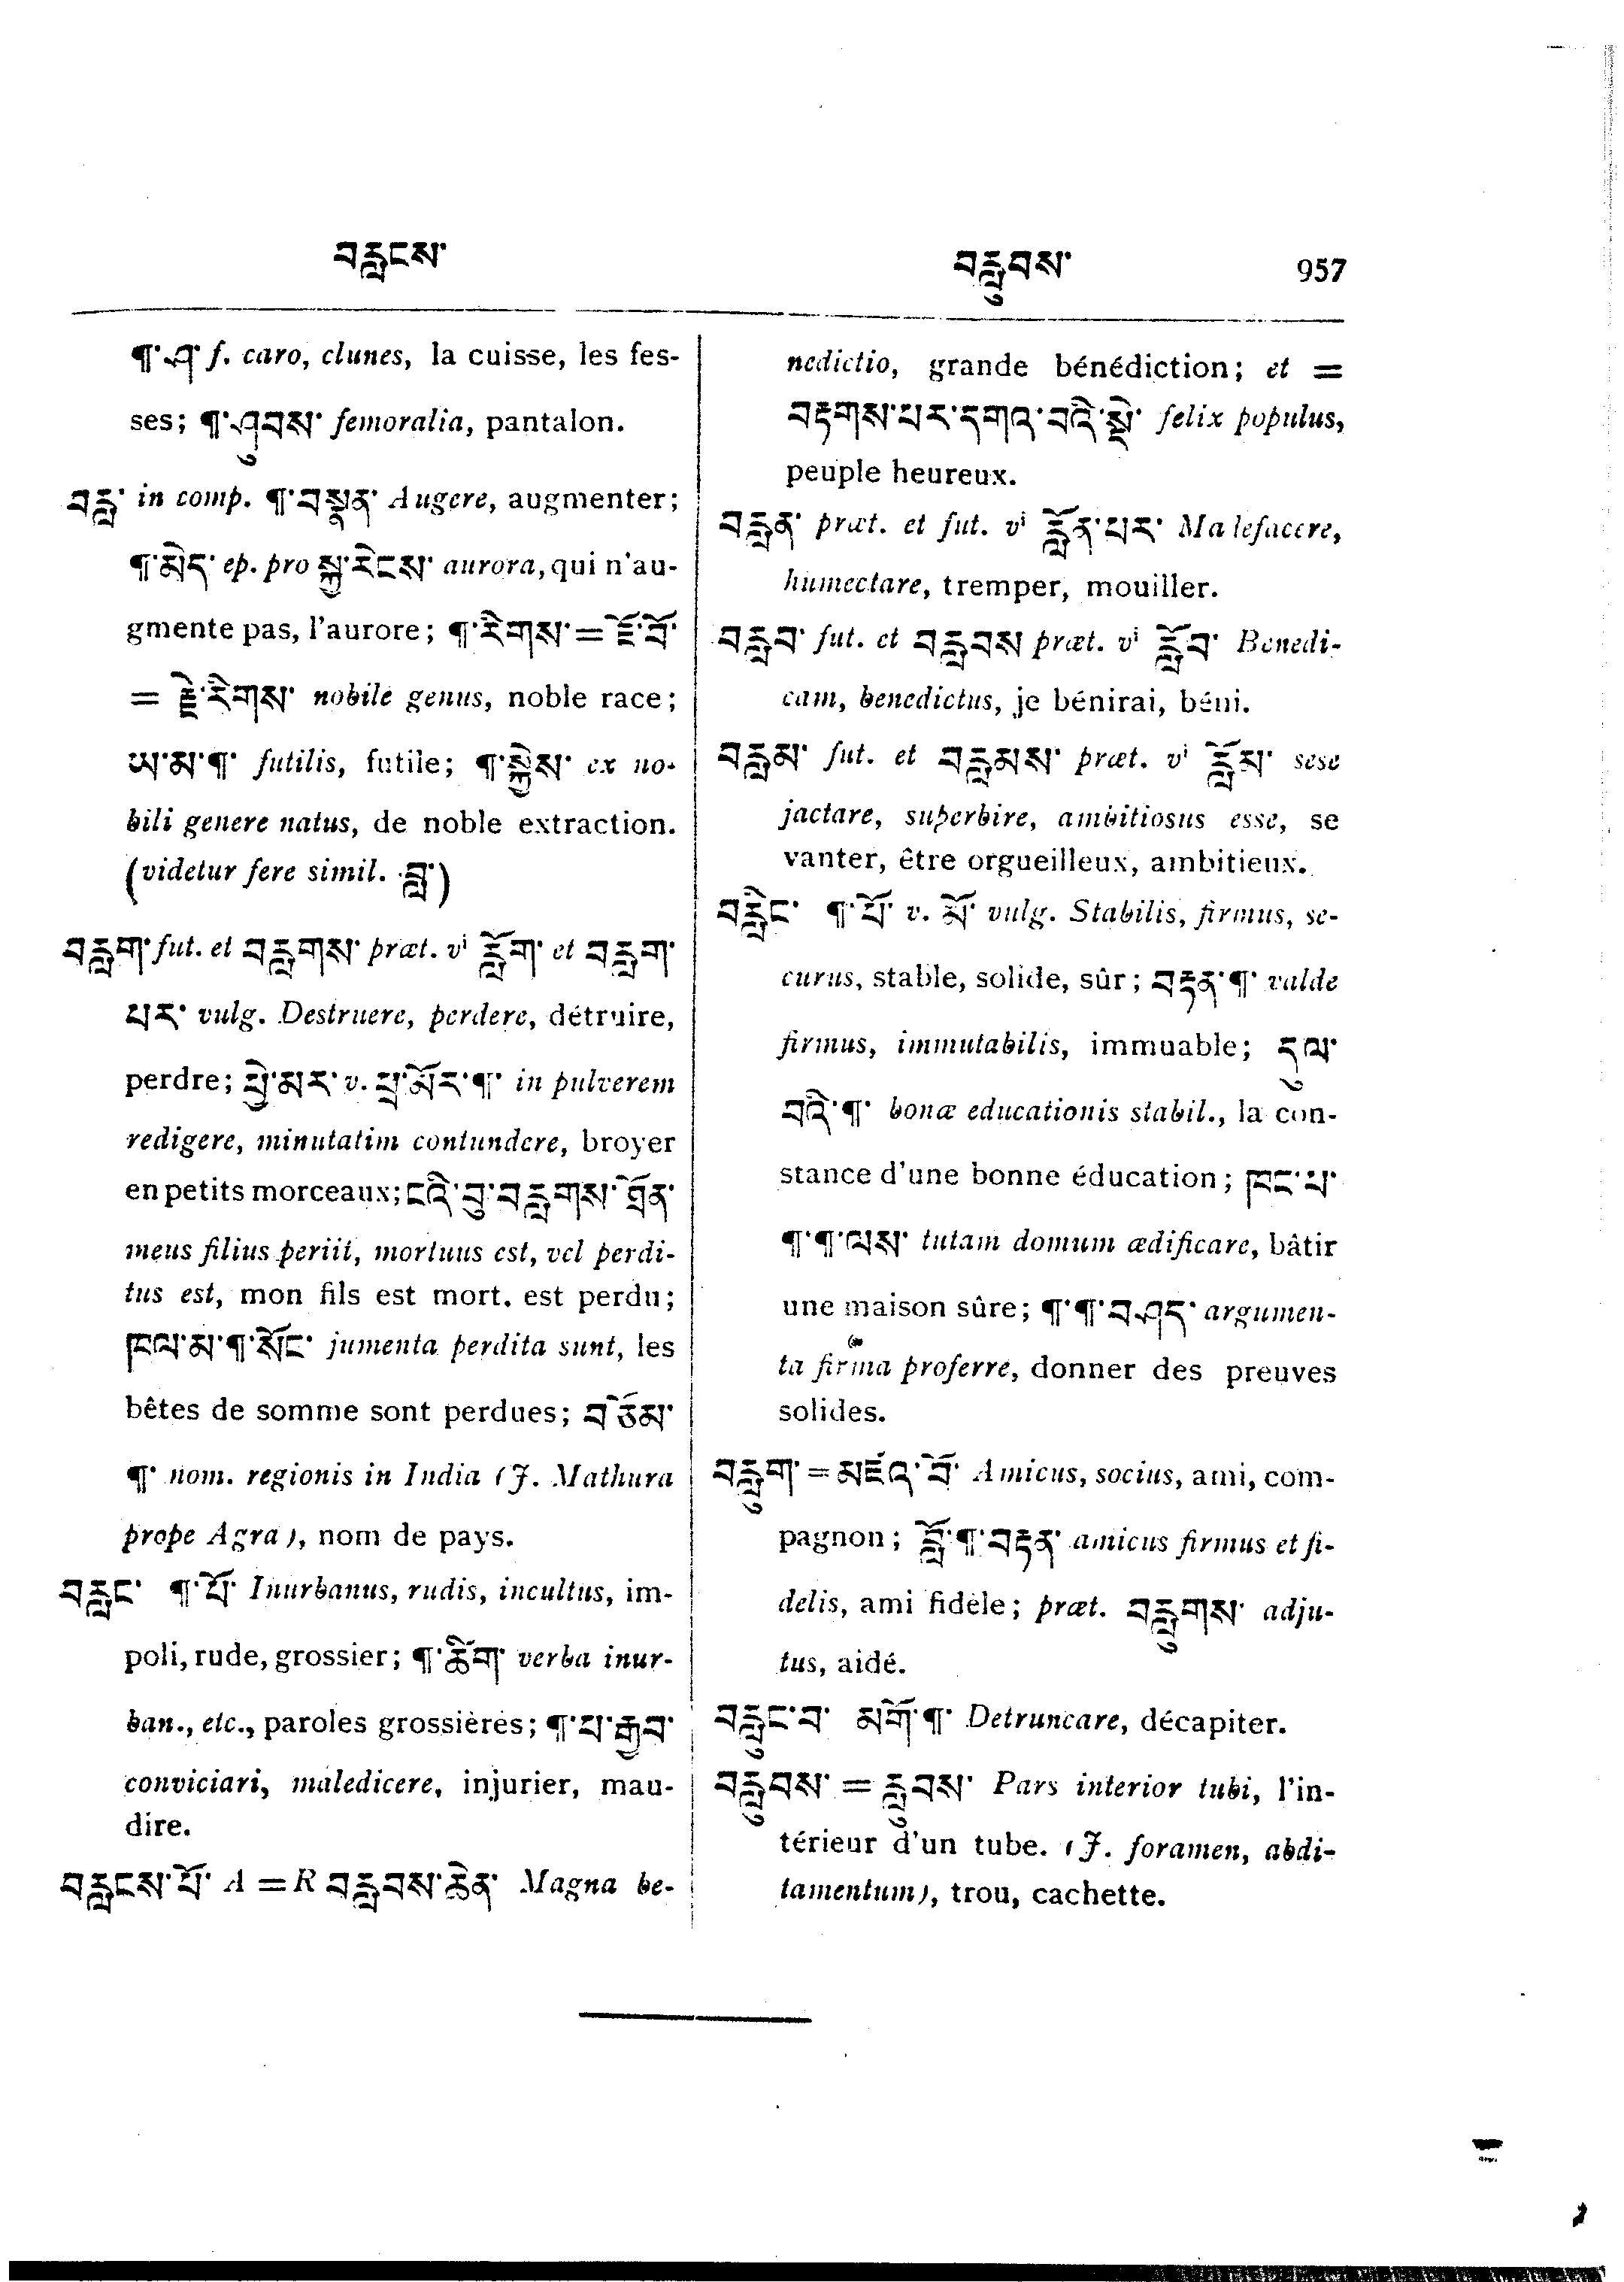 བརླངས་
བརླུབས་ 957
¶་ཤ་ f. caro, clunes, la cuisse, les fes-
ses; ¶་ཤུབས་ femoralia, pantalon.
བརླ་ in comp. ¶་བསྣན་ Augere, augmenter;
¶་མེད་ ep. pro སྐྱ་རེངས་ aurora, qui n'au-
gmente pas, l'aurore; ¶་རིགས་ = ཇོ་བོ་
= རྗེ་རིགས་ nobile genus, noble race;
ཡ་མ་¶་ futilis, futile; ¶་སྐྱེས་ ex no-
bili genere natus, de noble extraction.
(videtur fere simil. བླ་)
བརླག་ fut. et བརླགས་ præt. vⁱ རློག་ et བརླག་
པར་ vulg. Destruere, perdere, détruire,
perdre; ཕྱེ་མར་ v. ཕྲ་མོར་¶་ in pulverem
redigere, minutatim contundere, broyer
en petits morceaux; ངའི་བུ་བརླགས་ཐོན་
meus filius periit, mortuus est, vel perdi-
tus est, mon fils est mort. est perdu;
ཁལ་མ་¶་སོང་ jumenta perdita sunt, les
bêtes de somme sont perdues; བ་ཅོམ་
¶་ nom. regionis in India (J. Mathura
prope Agra), nom de pays.
བརླང་ ¶་པོ་ Inurbanus, rudis, incultus, im-
poli, rude, grossier; ¶་ཚིག་ verba inur-
ban., etc., paroles grossières; ¶་པ་རྒྱབ་
conviciari, maledicere, injurier, mau-
dire.
བརླངས་པོ་ A = R བརླབས་ཆེན་ Magna be-
nedictio, grande bénédiction; et =
བརྟགས་པར་དགའ་བའི་སྡེ་ felix populus,
peuple heureux.
བརླན་ præt. et fut. vⁱ རློན་པར་ Malefacere,
humectare, tremper, mouiller.
བརླབ་ fut. et བརླབས præt. vⁱ རློབ་ Benedi-
cam, benedictus, je bénirai, béni.
བརླམ་ fut. et བརླམས་ præt. vⁱ རློམ་ sese
jactare, superbire, ambitiosus esse, se
vanter, être orgueilleux, ambitieux.
བརླིང་ ¶་པོ་ v. མོ་ vulg. Stabilis, firmus, se-
curus, stable, solide, sûr; བརྟན་¶་ valde
firmus, immutabilis, immuable; དུལ་
བའི་¶་ bonæ educationis stabil., la con-
stance d'une bonne éducation; ཁང་པ་
¶་¶་ལས་ tutam domum ædificare, bâtir
une maison sûre; ¶་¶་བཤད་ argumen-
ta firma proferre, donner des preuves
solides.
བརླུག་ = མཛའ་བོ་ Amicus, socius, ami, com-
pagnon; བློ་¶་བརྟན་ amicus firmus et fi-
delis, ami fidèle; præt. བརླུགས་ adju-
tus, aidé.
བརླུང་བ་ མགོ་¶་ Detruncare, décapiter.
བརླུབས་ = རླུབས་ Pars interior tubi, l'in-
térieur d'un tube. (J. foramen, abdi-
tamentum), trou, cachette.